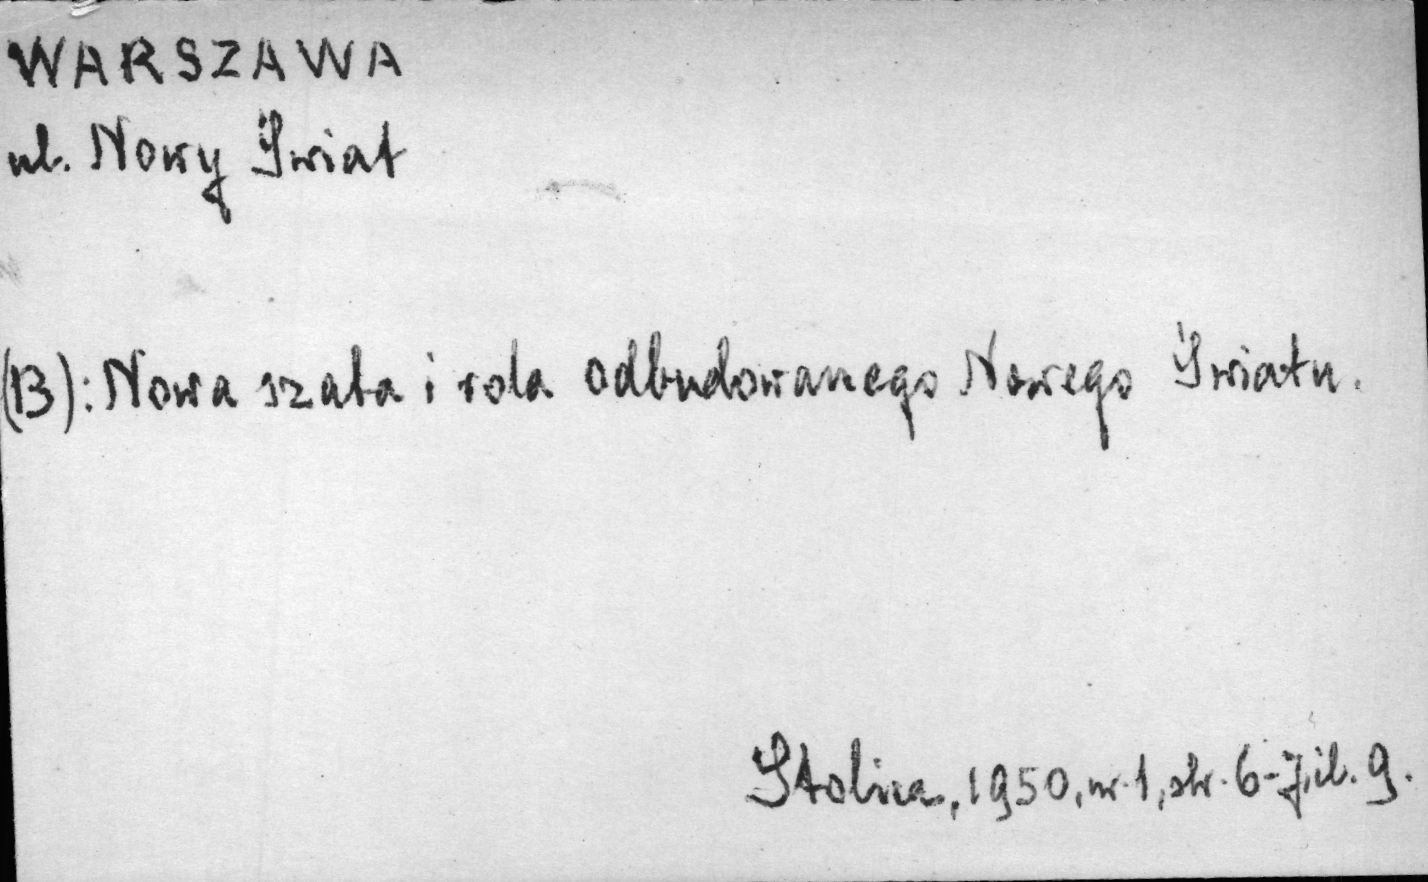 WARSZAWA
ul. Nowy Świat
(B): Nowa szata i rola odbudowanego Nowego Światu.
Stolica, 1950, nr. 1, str. 6-7, il. 9.